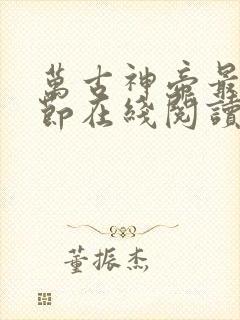 萬古神帝最
節在綫閱讀
董振杰